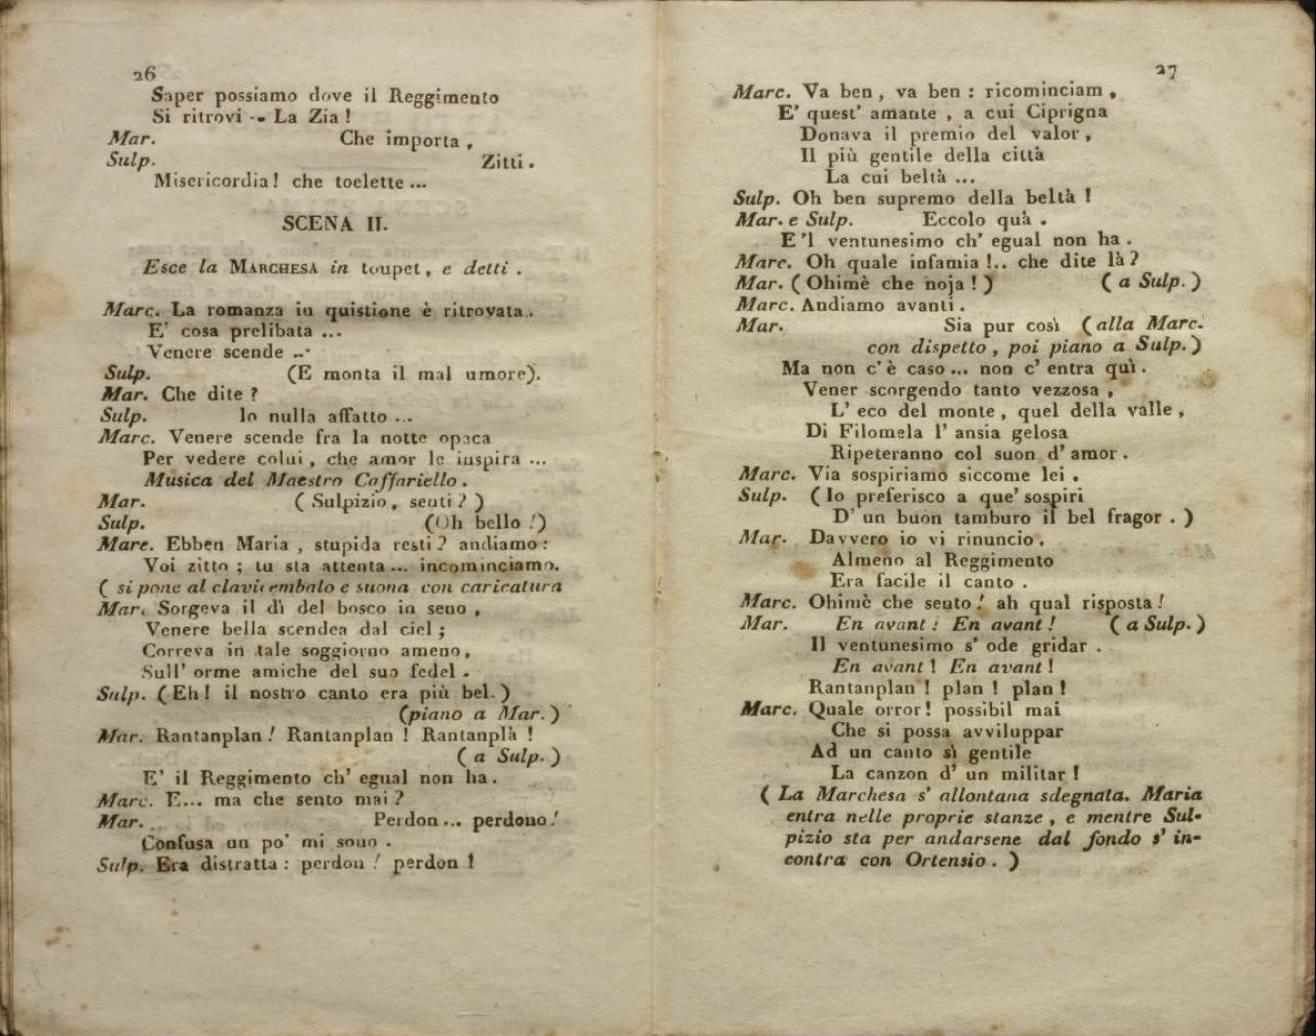 26
Saper possiamo dove il Reggimento
Si ritrovi -- La Zia !
Mar. Che importa ,
Sulp. Zitti .
Misericordia ! che toelette ...
SCENA II.
Esce la MARCHESA in toupet , e detti .
Marc. La romanza in quistione è ritrovata .
E' cosa prelibata ...
Venere scende ...
Sulp. (E monta il mal umore).
Mar. Che dite ?
Sulp. Io nulla affatto ...
Marc. Venere scende fra la notte opaca
Per vedere colui , che amor le inspira ...
Musica del Maestro Caffariello .
Mar. ( Sulpizio , senti ? )
Sulp. (Oh bello !)
Marc. Ebben Maria , stupida resti ? andiamo :
Voi zitto ; tu sta attenta ... incominciamo.
( si pone al clavicembalo e suona con caricatura
Mar. Sorgeva il dì del bosco in seno ,
Venere bella scendea dal ciel ;
Correva in tale soggiorno ameno ,
Sull' orme amiche del suo fedel .
Sulp. ( Eh ! il nostro canto era più bel . )
(piano a Mar. )
Mar. Rantanplan ! Rantanplan ! Rantanplà !
( a Sulp. )
E' il Reggimento ch' egual non ha .
Marc. E... ma che sento mai ?
Mar. Perdon ... perdono !
Confusa un po' mi sono .
Sulp. Era distratta : perdon ! perdon !
27
Marc. Va ben , va ben : ricominciam ,
E' quest' amante , a cui Ciprigna
Donava il premio del valor ,
Il più gentile della città
La cui beltà ...
Sulp. Oh ben supremo della beltà !
Mar. e Sulp. Eccolo quà .
E 'l ventunesimo ch' egual non ha .
Marc. Oh quale infamia !.. che dite là ?
Mar. ( Ohimè che noja ! ) ( a Sulp. )
Marc. Andiamo avanti .
Mar. Sia pur così (alla Marc.
con dispetto , poi piano a Sulp. )
Ma non c' è caso ... non c' entra quì .
Vener scorgendo tanto vezzosa ,
L' eco del monte , quel della valle ,
Di Filomela l' ansia gelosa
Ripeteranno col suon d' amor .
Marc. Via sospiriamo siccome lei .
Sulp. ( Io preferisco a que' sospiri
D' un buon tamburo il bel fragor . )
Mar. Davvero io vi rinuncio .
Almeno al Reggimento
Era facile il canto .
Marc. Ohimè che sento ! ah qual risposta !
Mar. En avant ! En avant ! ( a Sulp. )
Il ventunesimo s' ode gridar .
En avant ! En avant !
Rantanplan ! plan ! plan !
Marc. Quale orror ! possibil mai
Che si possa avviluppar
Ad un canto sì gentile
La canzon d' un militar !
( La Marchesa s' allontana sdegnata. Maria
entra nelle proprie stanze , e mentre Sul-
pizio sta per andarsene dal fondo s' in-
contra con Ortensio . )